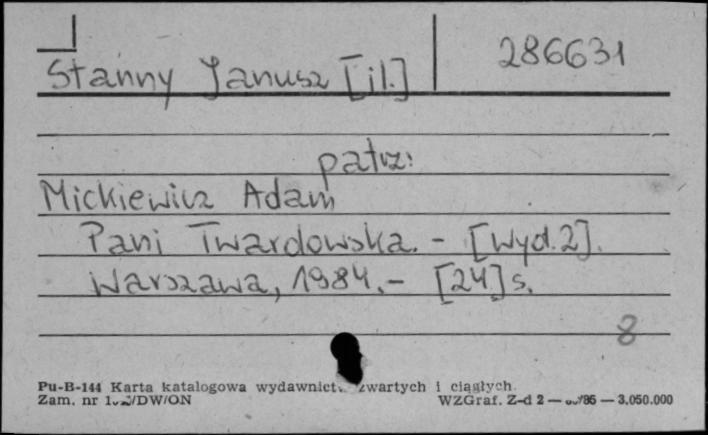 Stanny Janusz [il.] 286631
patrz:
Mickiewicz Adam
Pani Twardowska. - [Wyd. 2].
Warszawa, 1984. - [24] s.
8
Pu-B-144 Karta katalogowa wydawnictw zwartych i ciągłych.
Zam. nr /DW/ON WZGraf. Z-d 2 — /86 — 3.050.000